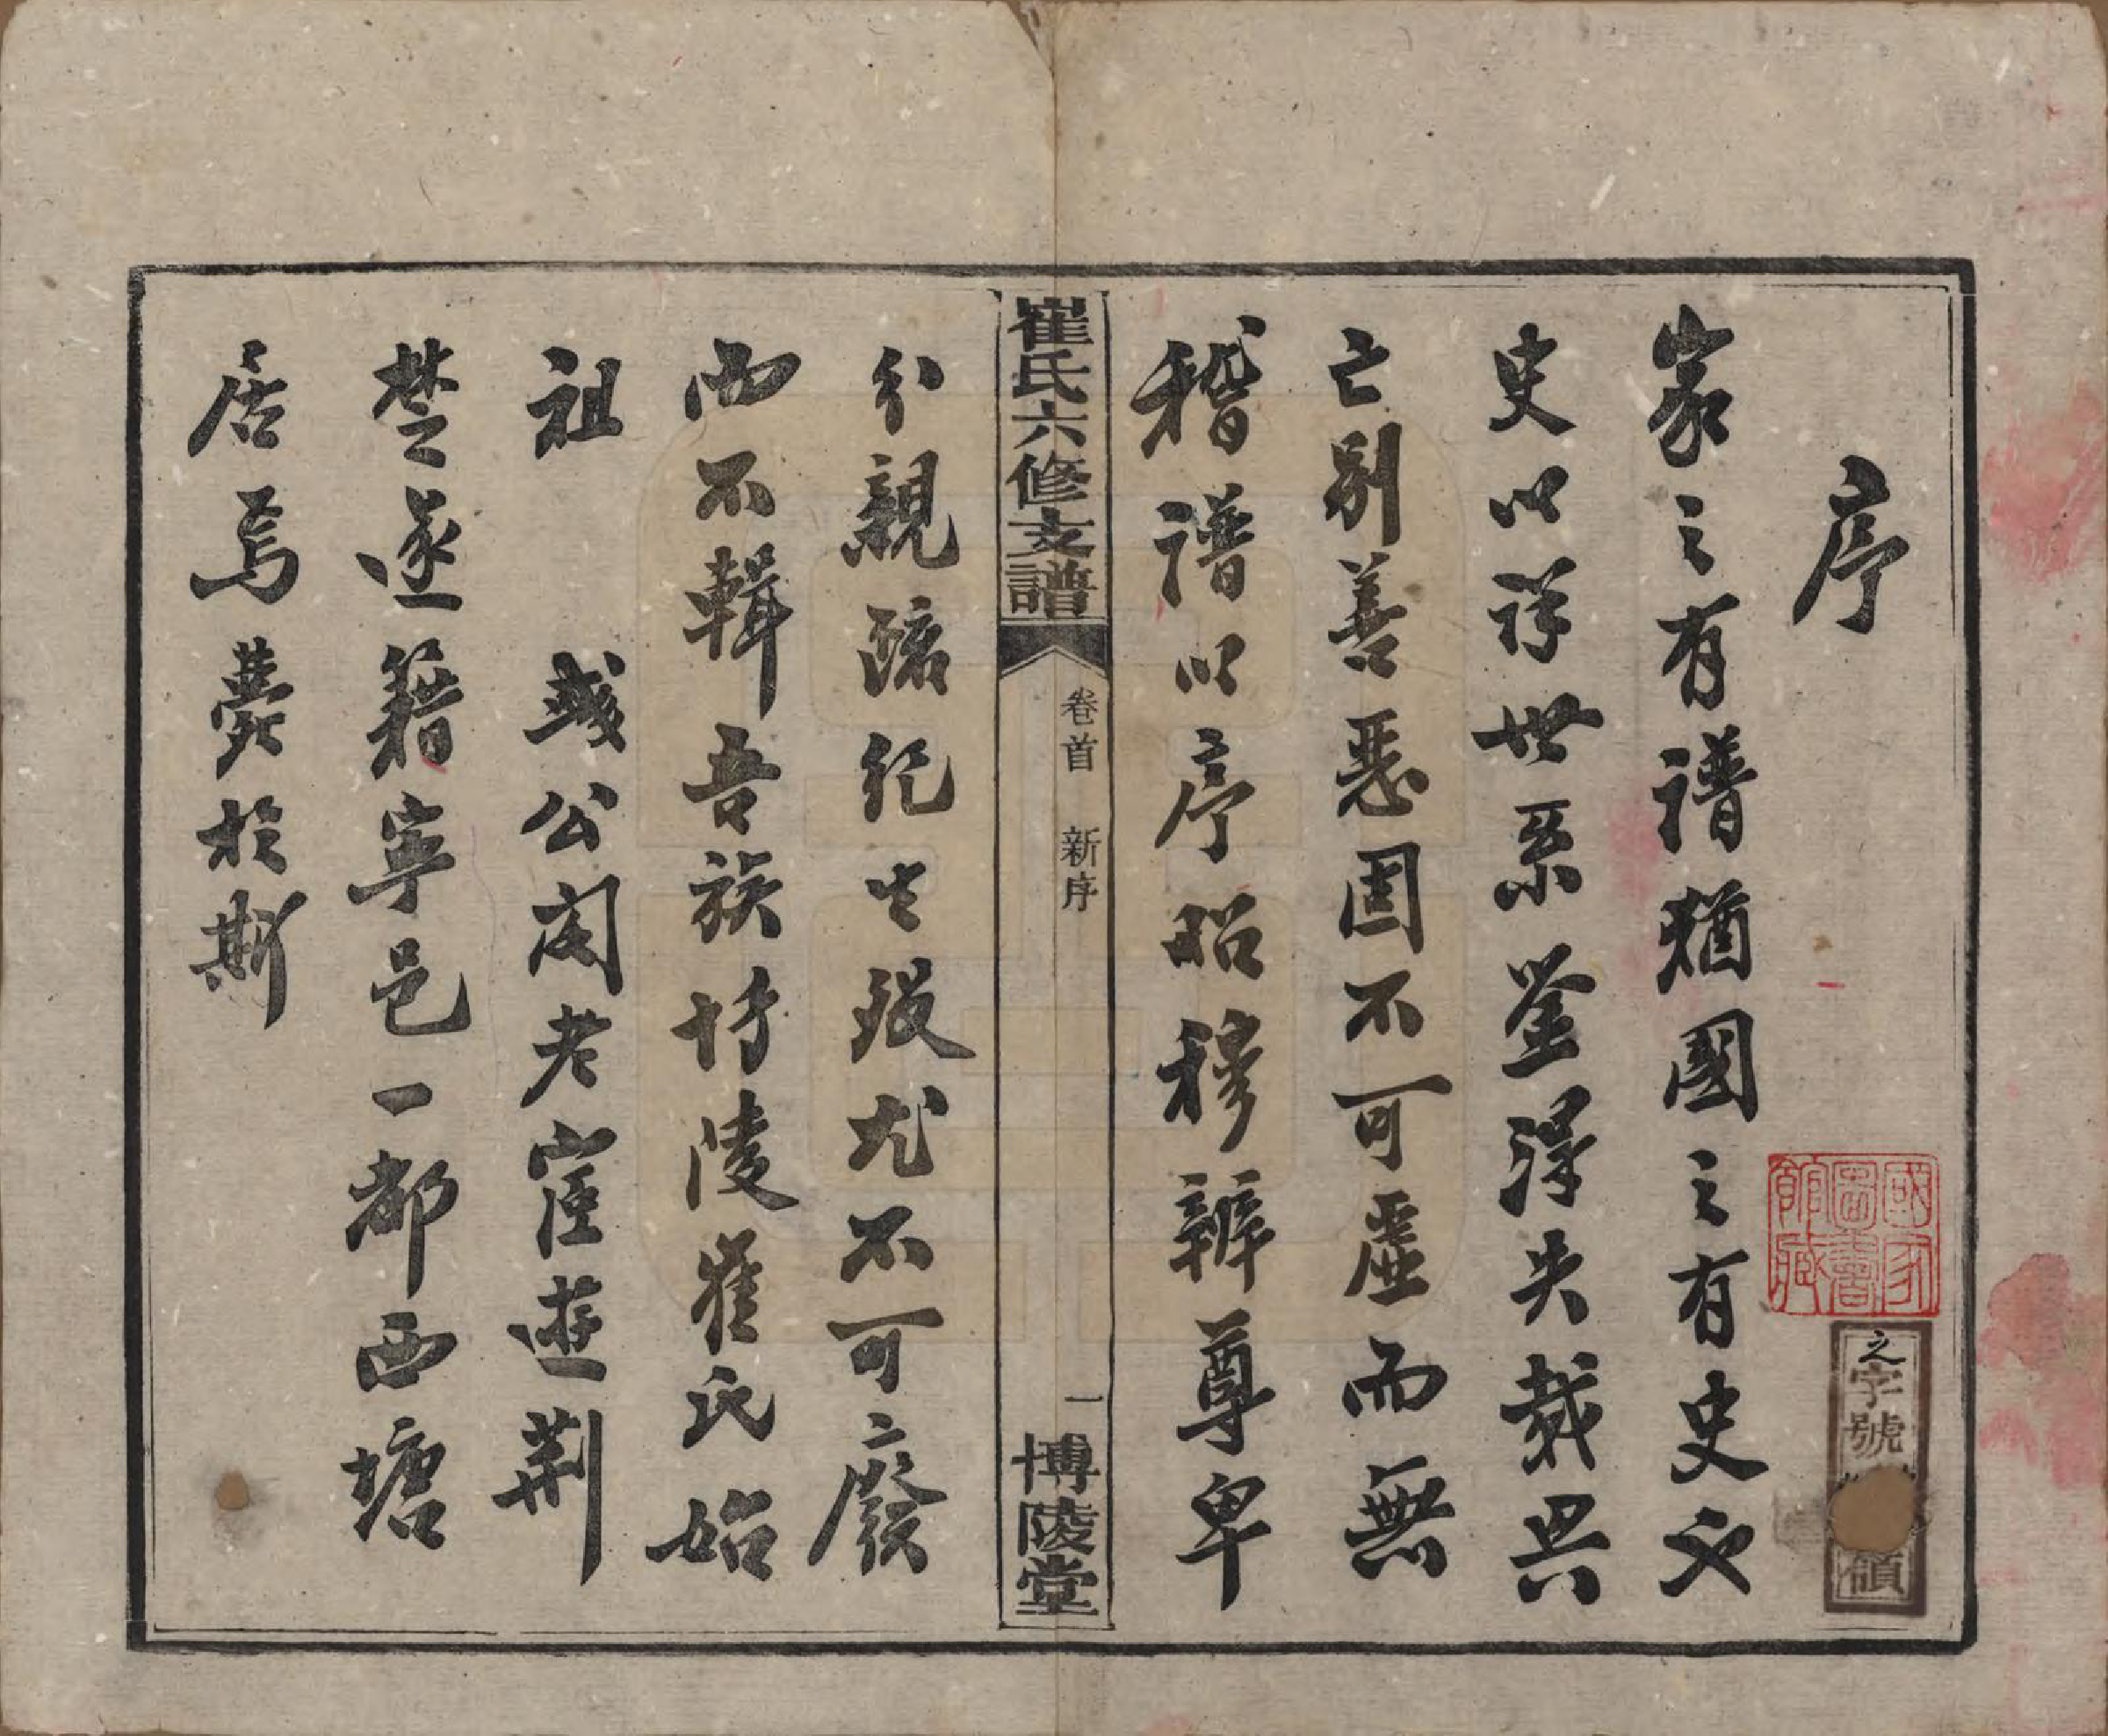 序
家之有譜猶國之有史必
史以詳世系鉴得失裁興
亡别善惡固不可虛而無
稽譜以序昭穆辨尊卑
分親疏紀生殁尤不可廢
而不輯吾族博陵崔氏始
祖 彧公閥老宦遊荆
楚遂籍寧邑一都西塘
居焉薨於斯
崔氏六修支譜
卷首 新序
一
博陵堂
國家圖書館藏
之字號
領